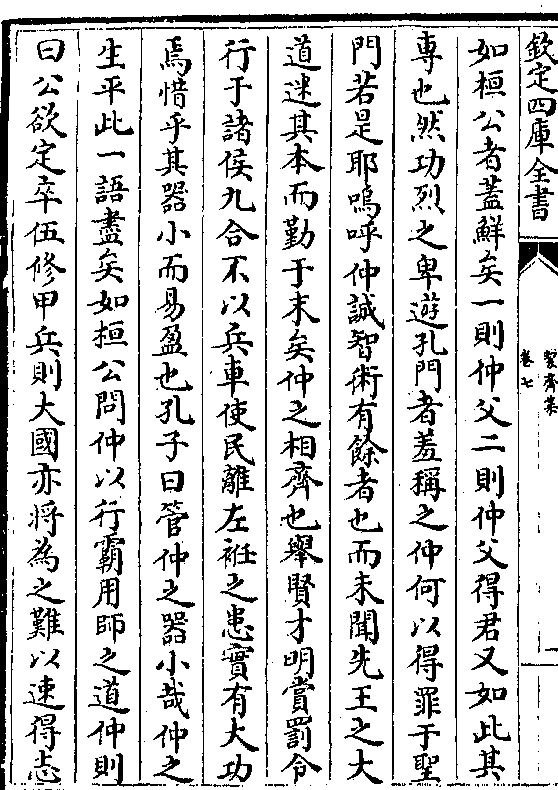 欽定四庫全書
卷七
如桓公者蓋鮮矣一則仲父二則仲父得君又如此其
專也然功烈之卑遊孔門者羞稱之仲何以得罪于聖
門若是耶嗚呼仲誠智術有餘者也而未聞先王之大
道迷其本而勤于末矣仲之相齊也舉賢才明賞罰令
行于諸侯九合不以兵車使民離左衽之患實有大功
焉惜乎其器小而易盈也孔子曰管仲之器小哉仲之
生平此一語盡矣如桓公問仲以行霸用師之道仲則
曰公欲定卒伍修甲兵則大國亦將為之難以速得志